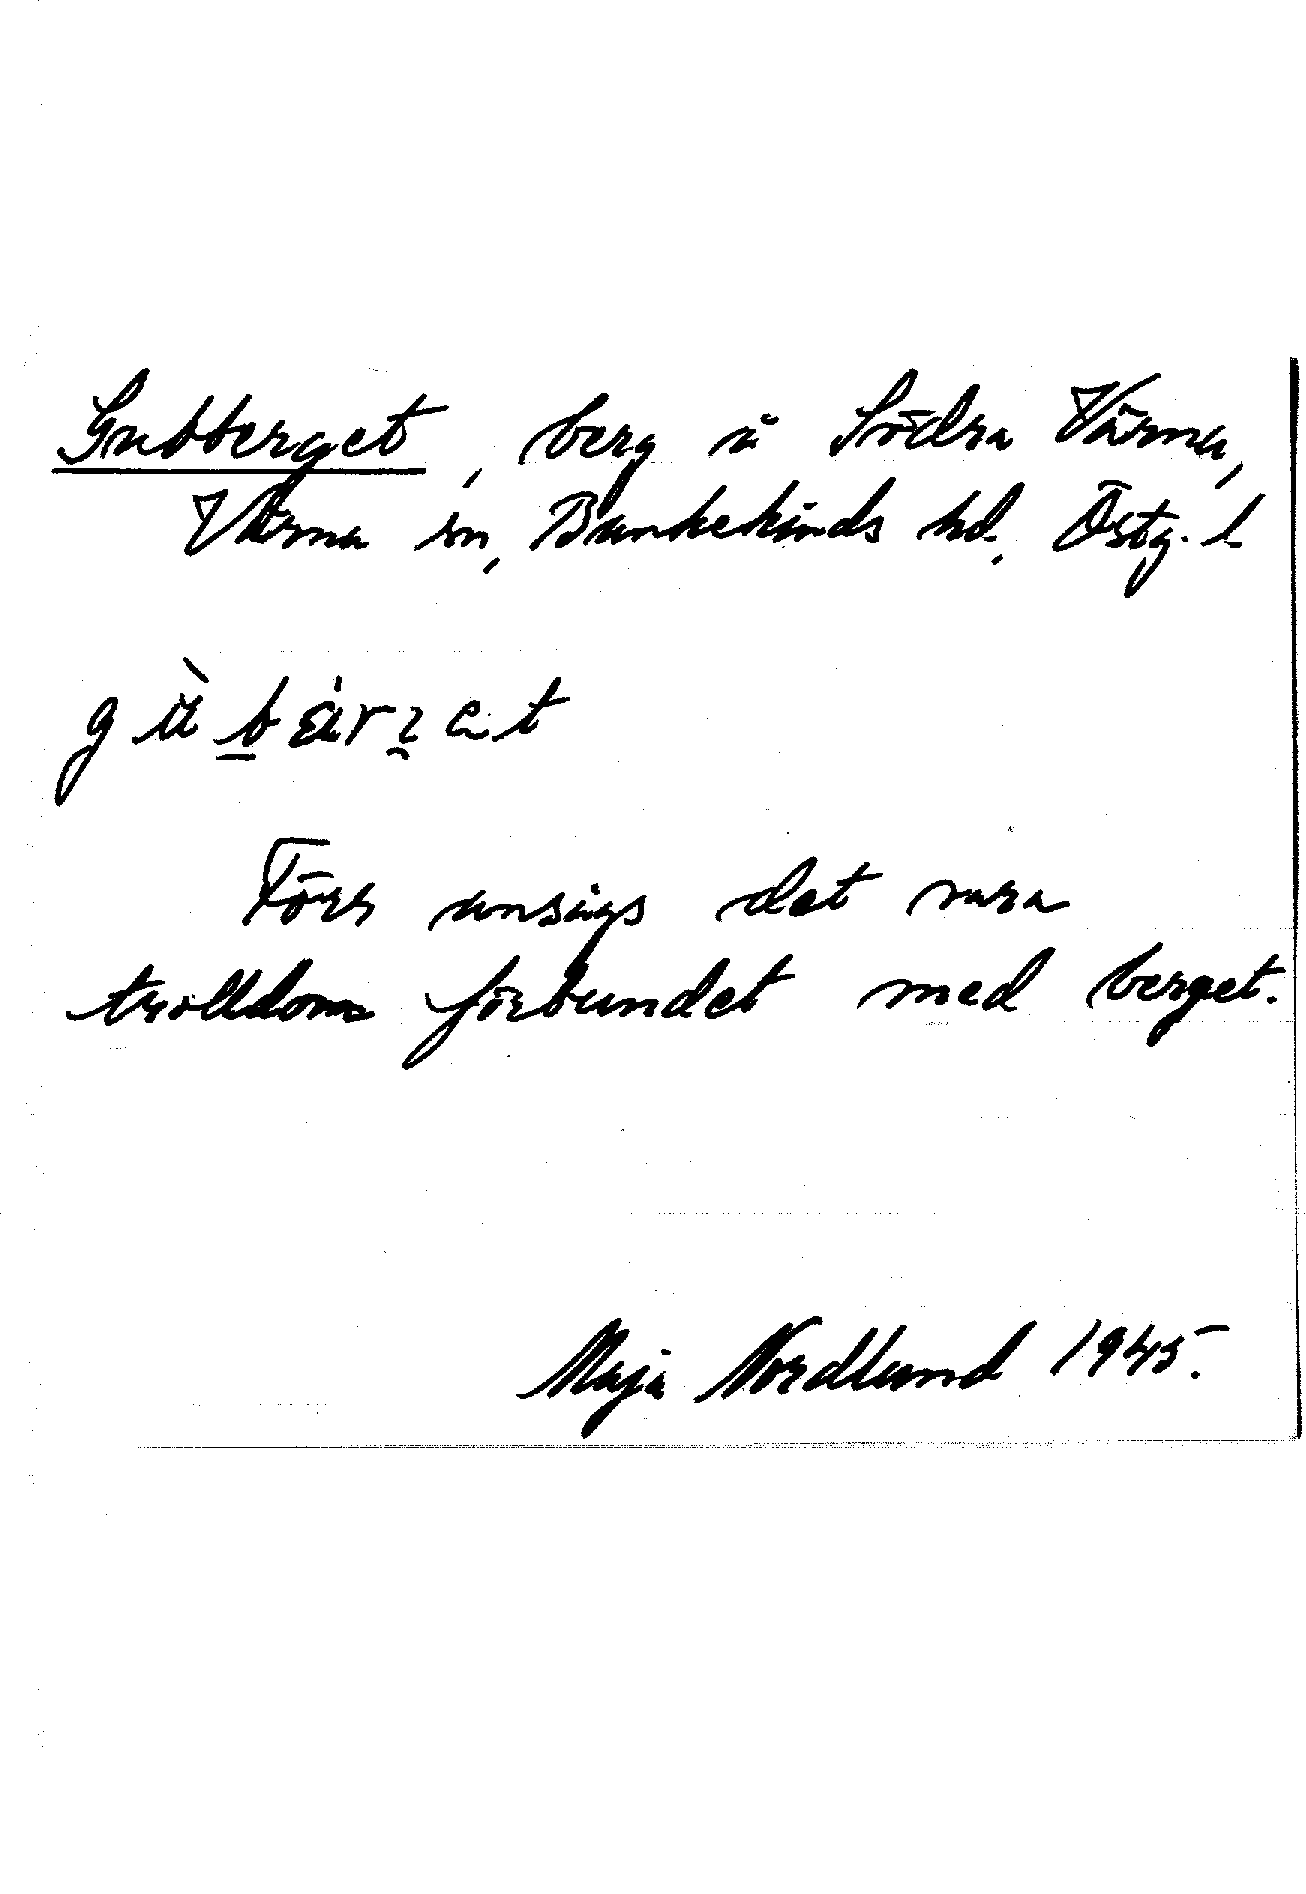 Gubberget, berg å Södra Värna,
Värna sn, Bankekinds hd. Östg. l.
gùbärʒet
Förr ansågs det vara
trolldom förbundet med berget.
Maja Nordlund 1945.